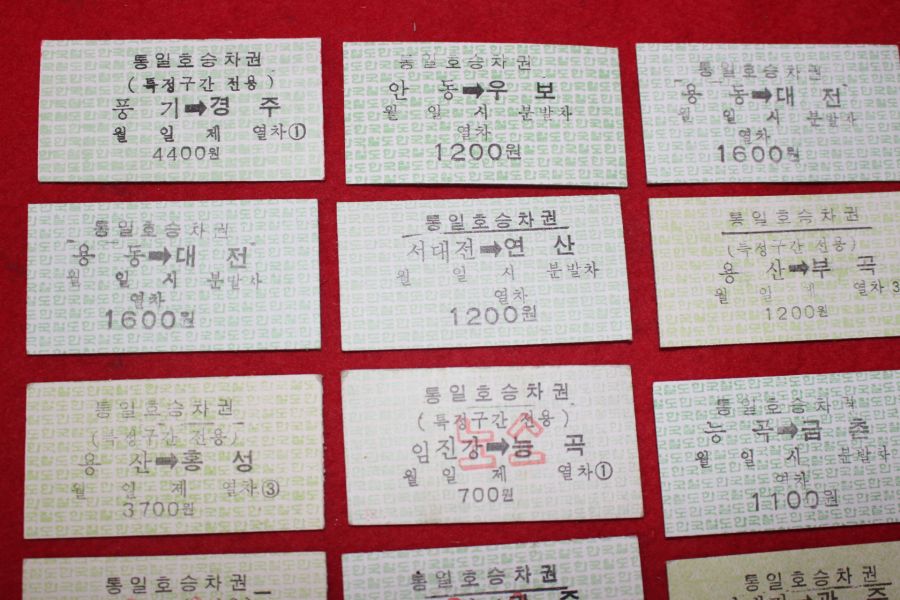 통일호승차권
( 특정구간 전용 )
풍 기➡경 주
월 일 제 열차①
4400원
통일호승차권
안 동➡우 보
월 일 시 분발차
열차
1200원
통일호승차권
용 동➡대 전
월 일 시 분발차
열차
1600원
통일호승차권
용 동➡대 전
월 일 시 분발차
열차
1600원
통일호승차권
서대전➡연 산
월 일 시 분발차
열차
1200원
통일호승차권
(특정구간 전용)
용 산➡부 곡
월 일 제 열차3
1200원
통일호승차권
(특정구간 전용)
용 산➡홍 성
월 일 제 열차③
3700원
통일호승차권
( 특정구간 전용 )
임진강➡능 곡
노소
월 일 제 열차①
700원
통일호승차권
능 곡➡금 촌
월 일 시 분발차
열차
1100원
통일호승차권
통일호승차권
통일호승차권